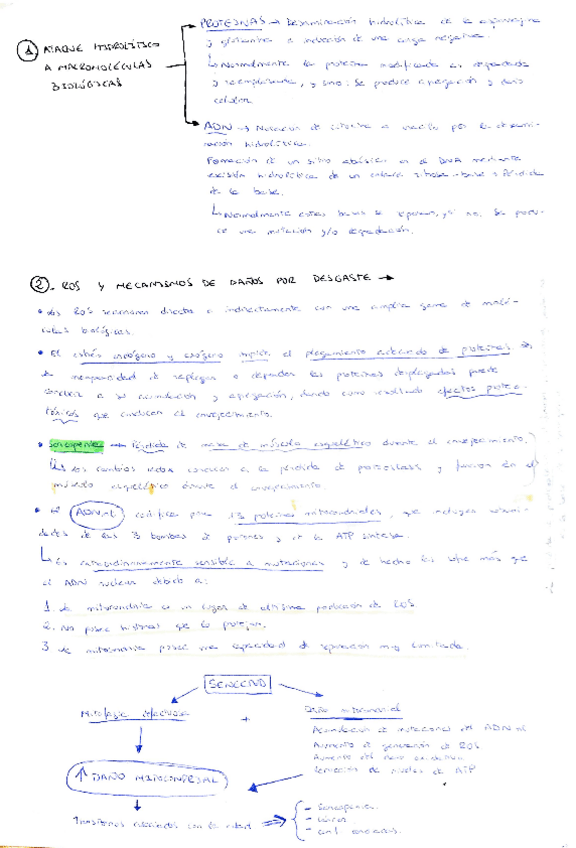 ① ATAQUE HIDROLÍTICO
A MACROMOLÉCULAS
BIOLÓGICAS
PROTEÍNAS → Desaminación hidrolítica de la asparagina
y glutamina e inducción de una carga negativa.
Normalmente la proteína modificada es degradada
y reemplazada, y sino: Se produce agregación y daño
celular
ADN → Mutación de citosina a uracilo por la desami-
nación hidrolítica.
Formación de un sitio abásico en el DNA mediante
escisión hidrolítica de un enlace ribosa-base: Pérdida
de la base.
Normalmente estas bases se reparan, y si no, se produ-
ce una mutación y/o degradación.
② ROS Y MECANISMOS DE DAÑOS POR DESGASTE →
• Los ROS reaccionan directa o indirectamente con una amplia gama de molé-
culas biológicas.
• El estrés endógeno y exógeno impide el plegamiento adecuado de proteínas.
la incapacidad de replegar o degradar las proteínas desplegadas puede
conducir a su acumulación y agregación, dando como resultado efectos proteo-
tóxicos que conducen al envejecimiento.
• Sarcopenia → Pérdida de masa de músculo esquelético durante el envejecimiento.
los cambios redox conducen a la pérdida de proteostasis y función en el
músculo esquelético durante el envejecimiento.
• El ADNmt codifica para 13 proteínas mitocondriales, que incluyen
de las 3 bombas de protones y de la ATP sintasa.
Es extraordinariamente sensible a mutaciones y de hecho las sufre más que
el ADN nuclear debido a:
1. La mitocondria es un lugar de altísima producción de ROS
2. No posee histonas que lo protejan.
3. La mitocondria posee una capacidad de reparación muy limitada.
SENECTUD
Mitofagia defectuosa
+
Daño mitocondrial
Acumulación de mutaciones del ADNmt
Aumento de generación de ROS
Aumento del daño oxidativo
de niveles de ATP
↑ DAÑO MITOCONDRIAL
Trastornos asociados con la edad
- Sarcopenia
- Cáncer